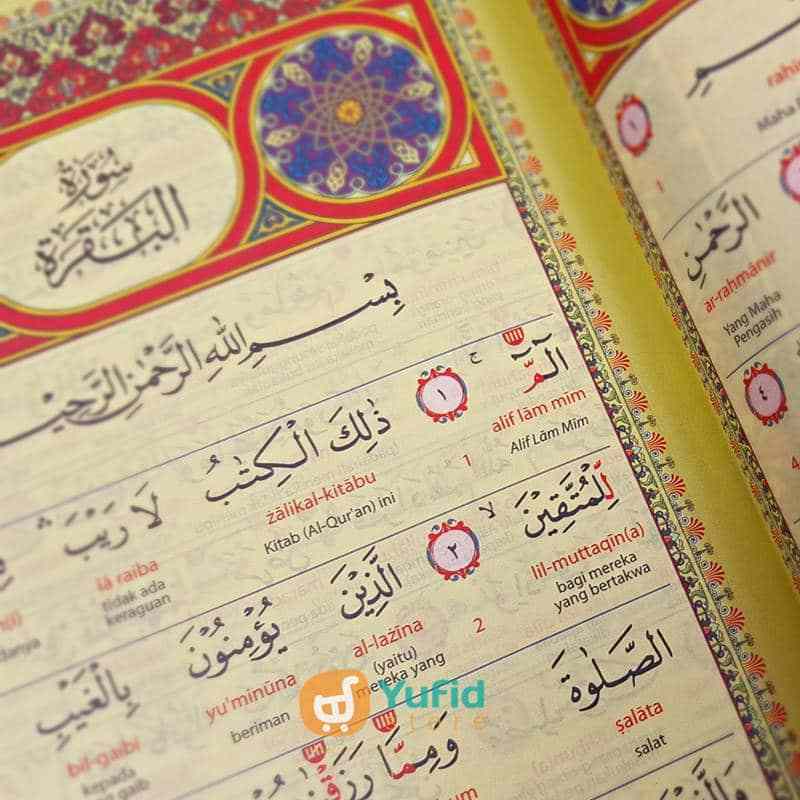 سُورَةُ
الْبَقَرَةِ
بِسْمِ اللّٰهِ الرَّحْمٰنِ الرَّحِيْ
الۤمّۤ ۚ ١ ذٰلِكَ الْكِتٰبُ لَا رَيْبَ ۛ
alif lām mīm 1 żālikal-kitābu lā raiba
Alif Lām Mīm Kitab (Al-Qur'an) ini tidak ada keraguan
لِّلْمُتَّقِيْنَ ۙ ٢ الَّذِيْنَ يُؤْمِنُوْنَ بِالْغَيْبِ
lil-muttaqīn(a) 2 al-lażīna yu'minūna bil-gaibi
bagi mereka yang bertakwa (yaitu) mereka yang beriman kepada
الصَّلٰوةَ وَمِمَّا
ṣalāta
salat
الرَّحْمٰنِ
ar-rahmānir
Yang Maha Pengasih
٤
١
1
Maha
Yufid
store